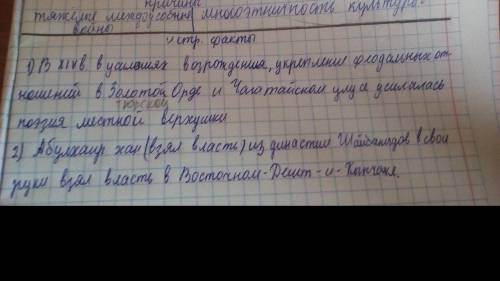 причины
тяжёлые междоусобные многоэтничность культуры.
войны
истр. факты
1) В XIV в. в условиях возрождения, укрепление феодальных от
ношений в Золотой Орде и Чагатайском улусе усилалась
тюрской
поэзия местной верхушки
2) Абулхаир хан (взял власть) из династии Шайбанидов в свои
руки взял власть в Восточном-Дешт-и-Кыпчаке.